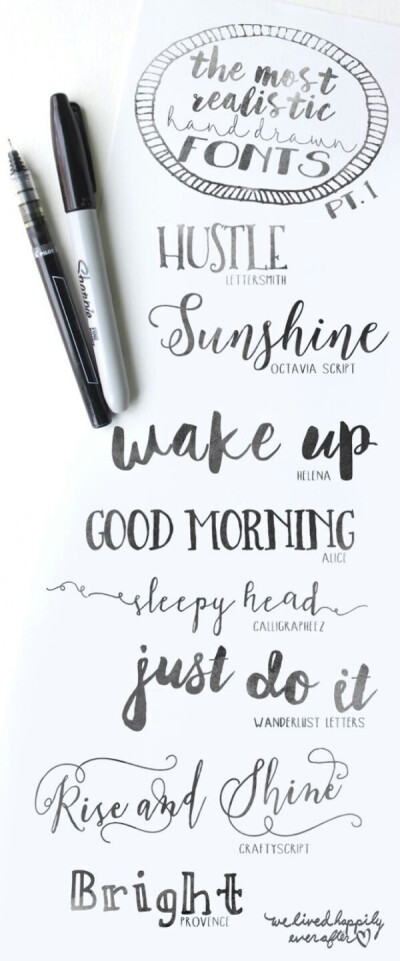 the most
realistic
hand drawn
FONTS
PT. 1
HUSTLE
LETTERSMITH
Sunshine
OCTAVIA SCRIPT
PILOT
Sharpie
wake up
HELENA
GOOD MORNING
ALICE
sleepy head
CALLIGRAPHEEZ
just do it
WANDERLUST LETTERS
Rise and Shine
CRAFTYSCRIPT
Bright
PROVENCE
we lived happily
ever after